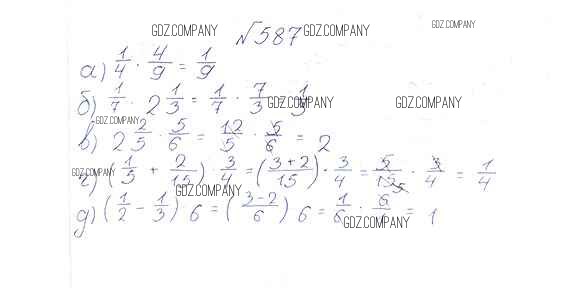 GDZ.COMPANY №587 GDZ.COMPANY GDZ.COMPANY
а) 1/4 · 4/9 = 1/9
б) 1/7 · 2 1/3 = 1/7 · 7/3 = 1/3 GDZ.COMPANY GDZ.COMPANY
в) 2 2/5 · 5/6 = 12/5 · 5/6 = 2 GDZ.COMPANY
г) (1/5 + 2/15) · 3/4 = (3+2/15) · 3/4 = 5/15 · 3/4 = 1/4 GDZ.COMPANY
GDZ.COMPANY
д) (1/2 - 1/3) 6 = (3-2/6) 6 = 1/6 · 6/1 = 1 GDZ.COMPANY